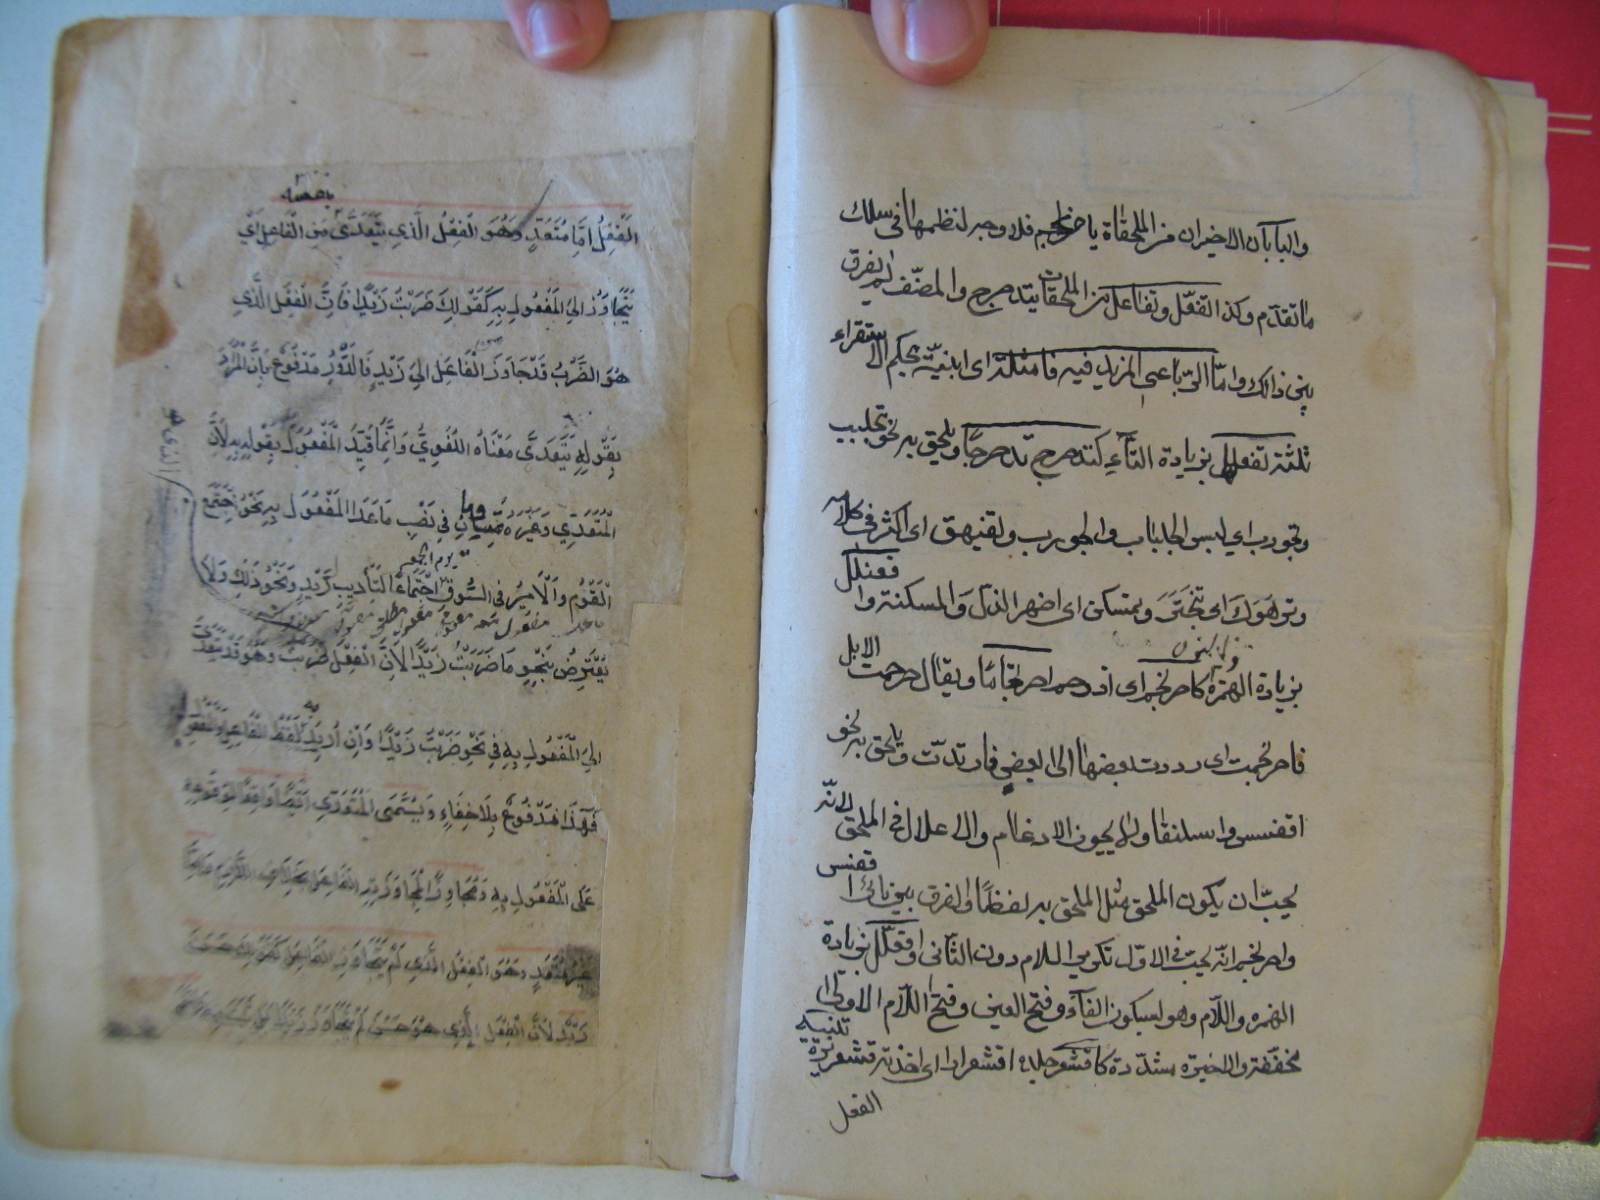 والبابان الاخيران من الملحقاة باحرنجم فلا وجه لنظمهما فى سلك
ما تقدم وكذا تفعّل وتفاعل من الملحقات بتدحرج والمصنّف لم يفرق
بين ذالك وامّا الرّباعى المزيد فيه فامثلته اى ابنيته بحكم الاستقراء
ثلثة تفعلل بزيادة التآء كتدحرج تدحرجًا ويلحق به نحو تجلبب
وتجورب اي لبس الجلباب والجورب وتفيهق اى اكثر فى كلامه
وترهوك اى تبختر وتمسكن اى اظهر الذلّ والمسكنة وافعنلل
بزيادة الهمزة والنون كاحرنجم اى ازدحم احرنجامًا ويقال حرجمت الابل
فاحرنجمت اى رددت بعضها الى بعض فارتدّت ويلحق به نحو
اقعنسس واسلنقا ولا يجوز الادغام والاعلال فى الملحق لانّه
يجب ان يكون الملحق مثل الملحق به لفظًا والفرق بين بابى اقعنسس
واحرنجم انّه يجب فى الاوّل تكرير اللام دون الثّانى وافعلّل بزيادة
الهمزه واللّام وهو بسكون الفآء وفتح العين وفتح اللّام الاولى
مخففة والاخيرة مشدّدة كاقشعر جلده اقشعرارا اى اخذته قشعريرة تنبيه
الفعل
الْفِعْلُ اِمَّا مُتَعَدٍّ وَهُوَ الْفِعْلُ الَّذِي يَتَعَدَّى مِنَ الْفَاعِلِ اَيْ
يَتَجَاوَزُ اِلىَ الْمَفْعُولِ بِهِ كَقَوْلِكَ ضَرَبْتُ زَيْدًا فَاِنَّ الْفِعْلَ الَّذِي
هُوَ الضَّرْبُ قَدْ جَاوَزَ الْفَاعِلَ اِلىَ زَيْدٍ فَالدَّوْرُ مَدْفُوعٌ بِاَنَّ الْمُرَادَ
بِقَوْلِهِ يَتَعَدَّى مَعْنَاهُ اللُّغَوِيُّ وَاِنَّمَا قَيَّدَ الْمَفْعُولَ بِقَوْلِهِ بِهِ لِاَنَّ
الْمُتَعَدِّي وَغَيْرَهُ سِيَّانِ فِي نَصْبِ مَا عَدَا الْمَفْعُولَ بِهِ نَحْوُ اِجْتَمَعَ
يوم الجمعه
الْقَوْمُ وَالْاَمِيرُ فِى السُّوقِ اِجْتِمَاعًا لِتَأْدِيبِ زَيْدٍ وَنَحْوُ ذٰلِكَ وَلَا
يُعْتَرَضُ بِنَحْوِ مَا ضَرَبْتُ زَيْدًا لِاَنَّ الْفِعْلَ ضَرَبْتُ وَهُوَ قَدْ يَتَعَدَّى
اِلىَ الْمَفْعُولِ بِهِ فِي نَحْوِ ضَرَبْتُ زَيْدًا وَاِنْ اُرِيدَ لَفْظُ الْفَاعِلِ وَالْمَفْعُولِ
فَهٰذَا مَدْفُوعٌ بِلَا خِفَاءٍ وَيُسَمَّى الْمُتَعَدِّي اَيْضًا وَاقِعًا لِوُقُوعِهِ
عَلَى الْمَفْعُولِ بِهِ وَمُجَاوِزًا لِمُجَاوَزَتِهِ الْفَاعِلَ بِخِلَافِ اللَّازِمِ
غَيْرُ مُتَعَدٍّ وَهُوَ الْفِعْلُ الَّذِي لَمْ يَتَجَاوَزِ الْفَاعِلَ كَقَوْلِكَ حَسُنَ
زَيْدٌ لِاَنَّ الْفِعْلَ الَّذِي هُوَ حَسُنَ لَمْ يَتَجَاوَزْ زَيْدًا